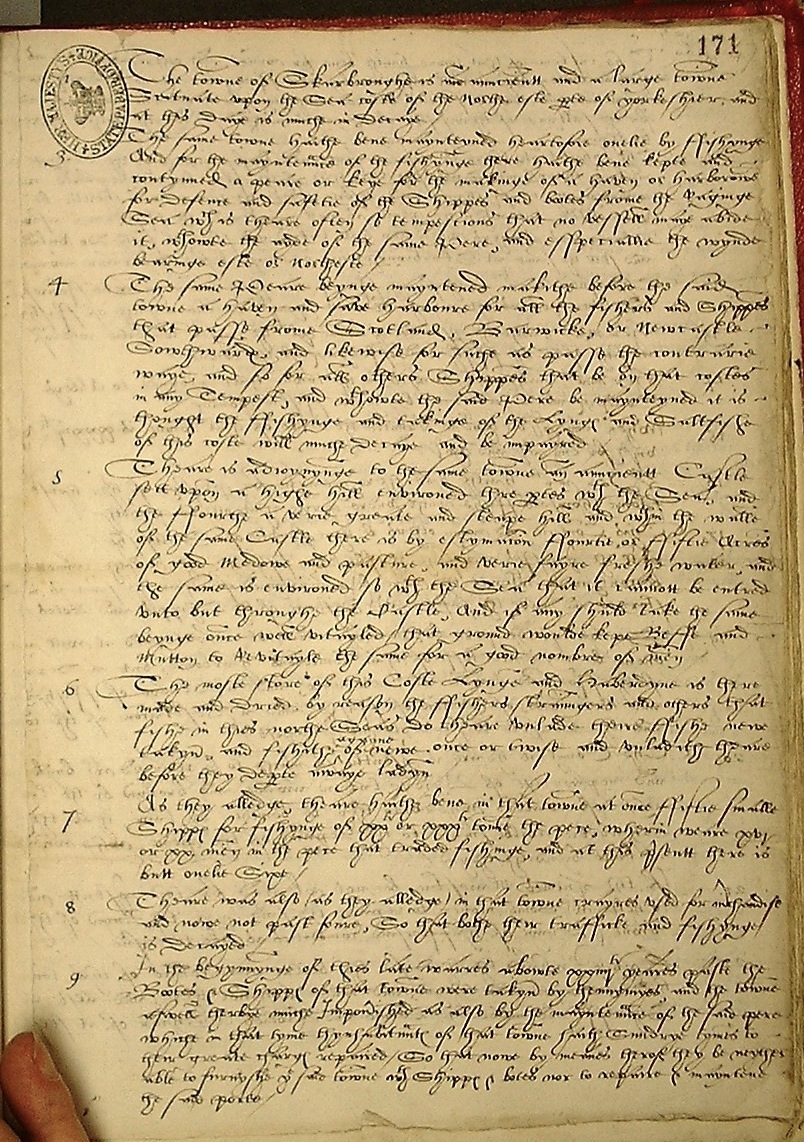 171
The towne of Skarbroughe is an auncientt and a large towne
Scituate upon the Sea coste of the Northe este pte of Yorkeshier, and
at this daye is muche in decaye
3 The same towne hathe bene maynteyned heartofore onelie by ffishynge
And for the mayntenance of the fishynge there hathe bene kepte and
contynued a peare or keye for the makinge of a haven or harborowe
for defence and saftie of the Shippes and botes frome the raginge
Sea wch is theare often so tempestious that no vessell maye abide
it, wthowte the ayde of the same Pere, and esspeciallie the wynde
bearinge este or Northeste /
4 The same Peare beynge mayntened makithe before the said
towne a haven and save harboure for all the fishers and Shippes
that passe frome Scotland, Barwicke, or Newcastle
Sowthward, and likewise for suche as passe the contrarie
waye, and so for all others Shippes that be on that costes
in any Tempest, and wthowte the said Pere be maynteyned it is
thought the ffishynge and takinge of the Lynge and Saltfishe
of this coste will muche decaye and be impayred
5 Theare is adioynynge to the same towne an auncientt Castle
sett upon a highe hill environed thre ptes wth the Sea, and
the ffourthe a verie greate and steape hill and wthin the walle
of the same Castle there is by estymacon ffourtie or ffiftie Acres
of good Medowe and pasture, and verie fayre freshe water, and
the same is environed so wth the Sea that it cannott be entred
unto but throughe the Castle, And if any shuld take the same
beynge once well vitayled / that ground woulde kepe Beffe and
Mutton to Revitayle the same for a good nombre of Men
6 The moste store of this Coste Lynge and Haberdyne is there
made and dried, by reason the ffishers straungers and others that
fishe in thies northe Seas do theare unlade theire ffishe newe
takyn, and fishithe agayne of newe once or twise and unladith theare
before they depte awaye ladyn
7 As they alledge, theare hathe bene in that towne at once ffiftie smalle
Shippes for fishynge of xxti or xxxti tonnes the pece, wherin weare xvi
or xx men in the pece that traded fishynge, and at this psentt there is
butt onelie Sixe /
8 Theare was also (as they alledge) in that towne crayres used for mchandise
and nowe not past foure, So that bothe their traffick and fishynge
is decayed
9 In the begynnynge of thies late warres abowte xxiiii yeares paste the
Bootes & Shippes of that towne were takyn by thennymyes and the towne
aswell therbye muche Impovrished as also by the mayntenance of the said pere
whiche in that tyme thynhabitantes of that towne hath Sundrye tymes to
their greate charge repaired / So that nowe by meanes therof they be neyther
able to furnyshe ye said towne wth Shippes & botes nor to repaire & mayntene
the said porte /